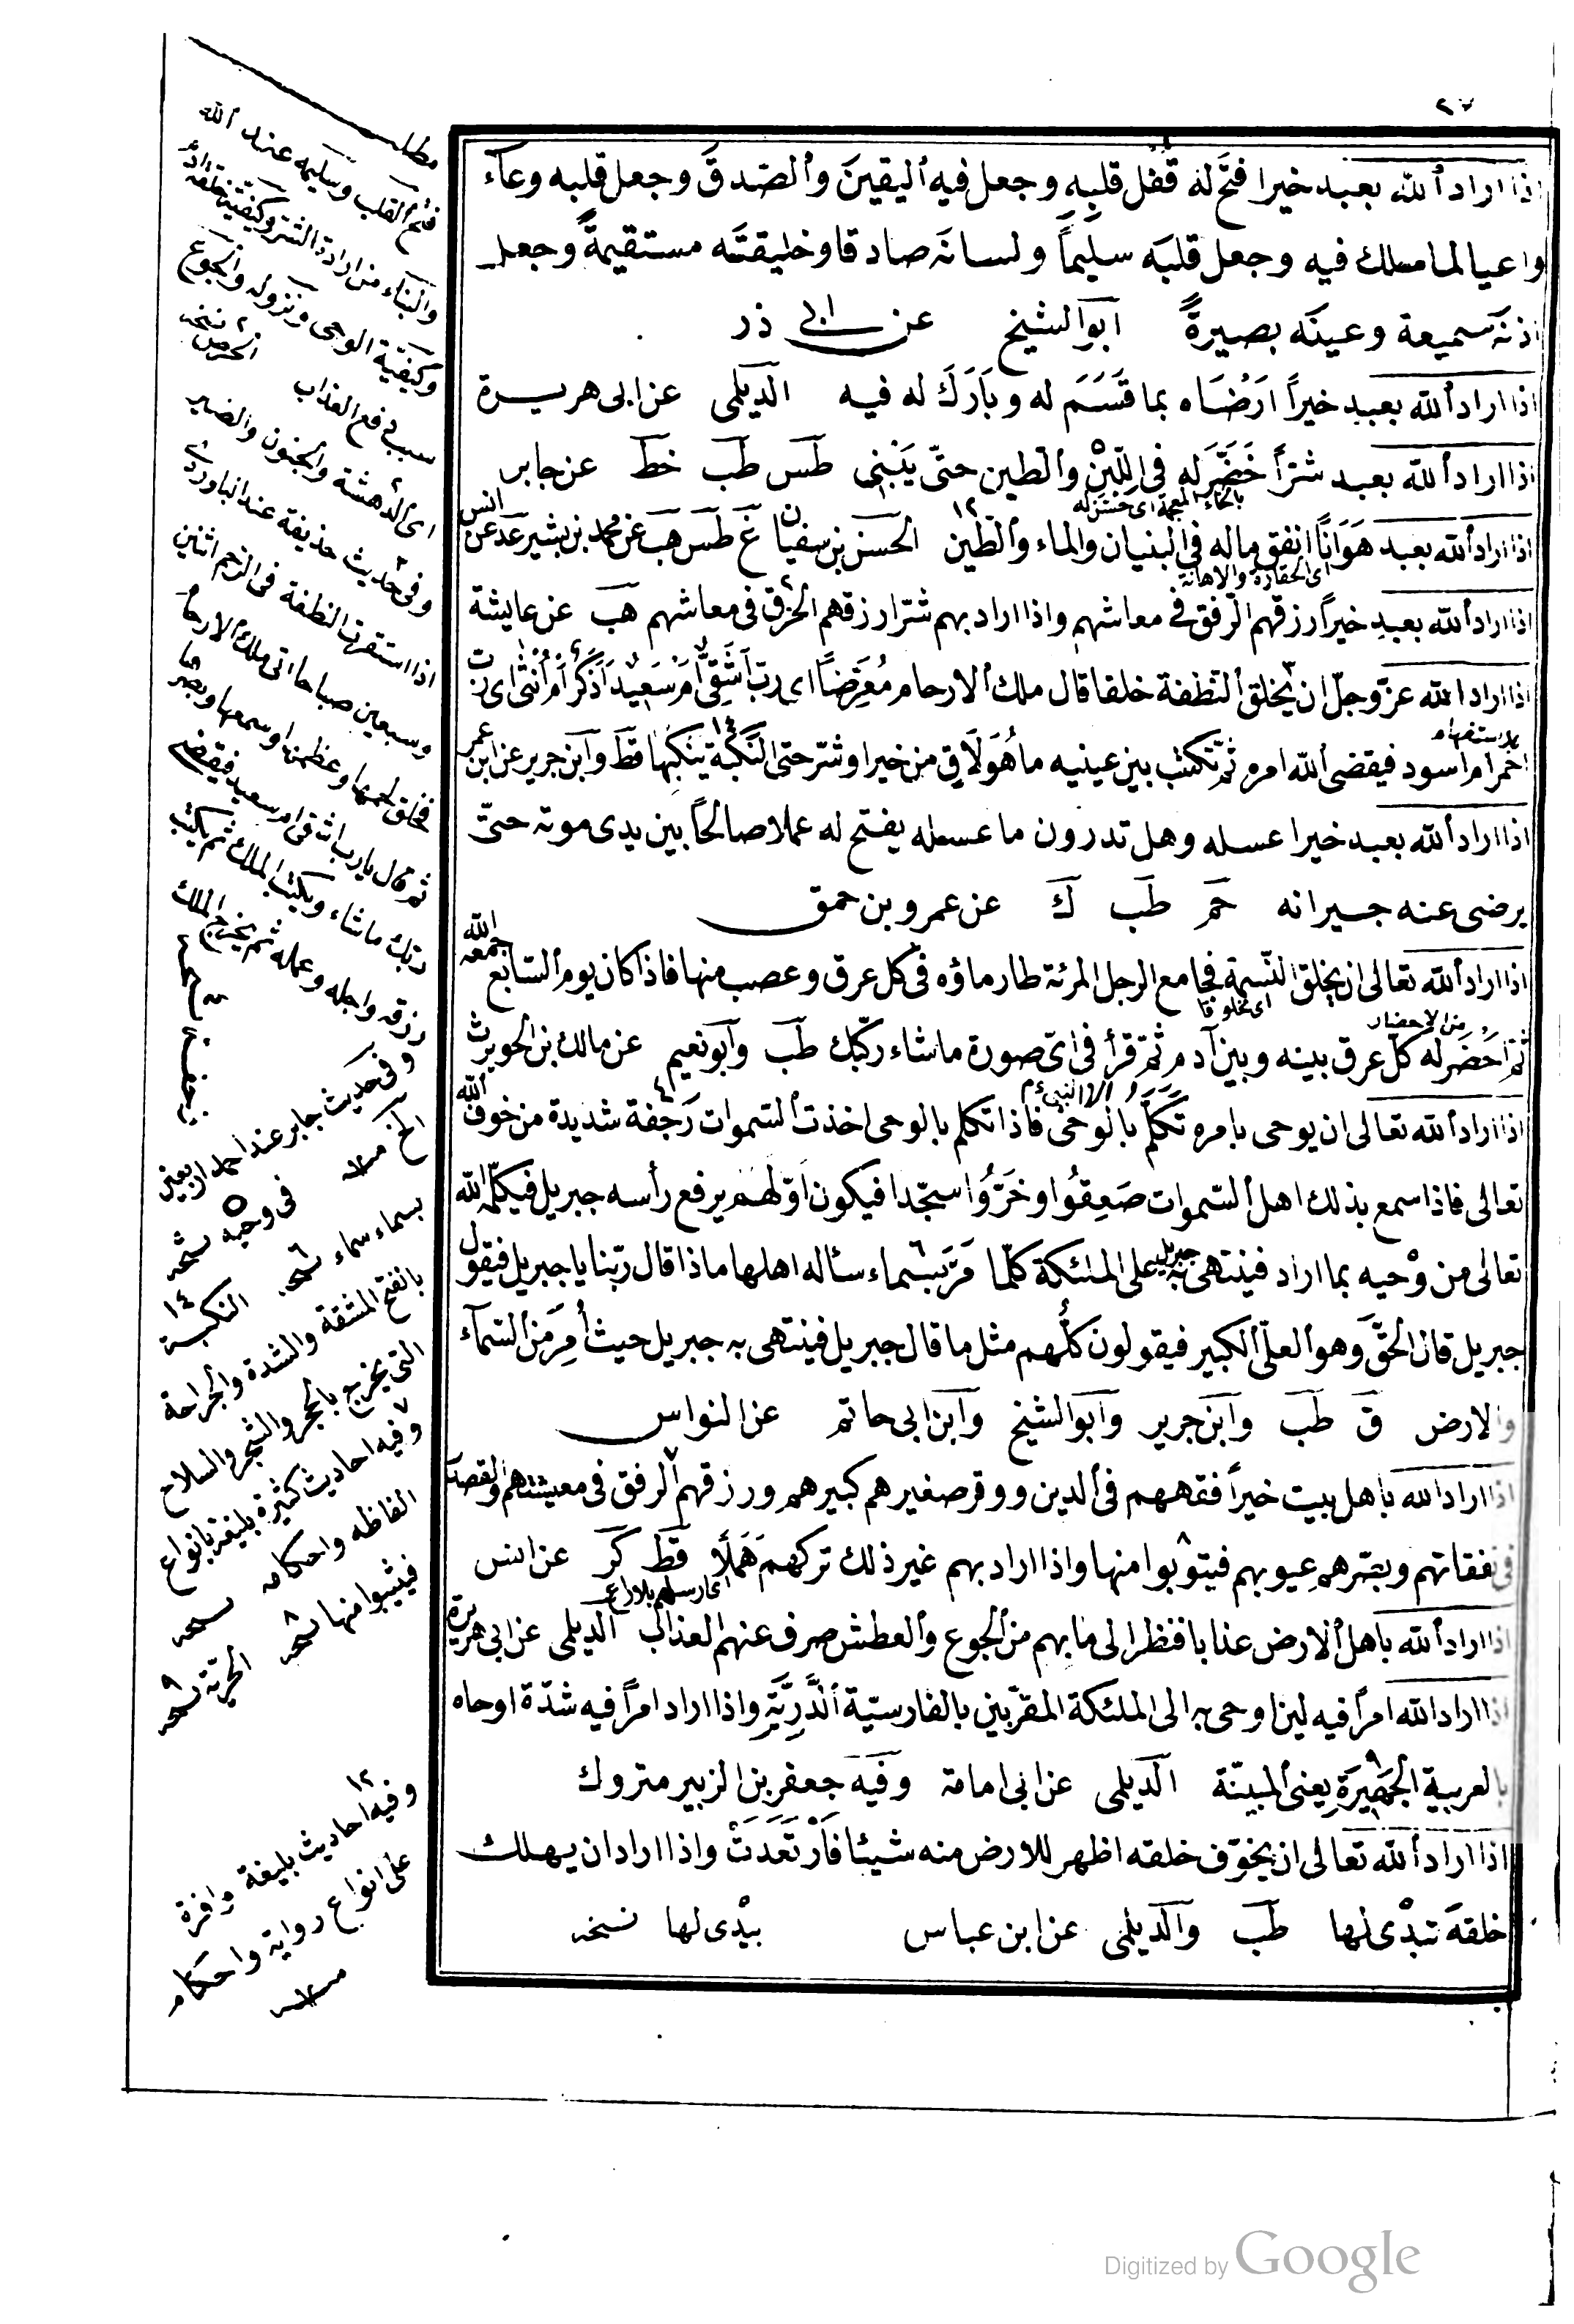 ٢٧
اذا اراد الله بعبد خيرا فتح له قفل قلبه وجعل فيه اليقين والصدق وجعل قلبه وعاء
واعيا لما سلك فيه وجعل قلبه سليما ولسانه صادقا وخليقته مستقيمة وجعل
اذنه سميعة وعينه بصيرة ابو الشيخ عن ابى ذر
اذا اراد الله بعبد خيرا ارضاه بما قسم له وبارك له فيه الديلمى عن ابى هريرة
اذا اراد الله بعبد شرا خضر له فى اللبن والطين حتى يبنى طس طب خط عن جابر
بالخاء المعجمة اى حسن له
اذا اراد الله بعبد هوانا انفق ماله فى البنيان والماء والطين الحسن بن سفيان غ طس هب عن محمد بن بشير عد عن انس
اى الحقارة والاهانة
اذا اراد الله بعبد خيرا رزقهم الرفق فى معاشهم واذا اراد بهم شرا رزقهم الخرق فى معاشهم هب عن عايشة
اذا اراد الله عز وجل ان يخلق النطفة خلقا قال ملك الارحام معرضا اى رب أشقى ام سعيد أذكر ام انثى اى رب
بلا استفهام
احمر ام اسود فيقضى الله امره ثم تكتب بين عينيه ما هو لاق من خير او شر حتى النكبة ينكبها قط وابن جرير عن ابن عمر
اذا اراد الله بعبد خيرا عسله وهل تدرون ما عسله يفتح له عملا صالحا بين يدى موته حتى
يرضى عنه جيرانه حم طب ك عن عمرو بن حمق
اذا اراد الله تعالى ان يخلق النسمة فجامع الرجل المرئة طار ماؤه فى كل عرق وعصب منها فاذا كان يوم السابع جمعه الله
اى مخلوقا
من الاحضار
ثم احضر له كل عرق بينه وبين آدم ثم قرأ فى اى صورة ما شاء ركبك طب وابو نعيم عن مالك بن الحويرث
اذا اراد الله تعالى ان يوحى بامره تكلم بالوحى فاذا تكلم بالوحى اخذت السموات رجفة شديدة من خوف الله
تعالى فاذا سمع بذلك اهل السموات صعقوا وخروا سجدا فيكون اولهم يرفع رأسه جبريل فيكلمه الله
تعالى من وحيه بما اراد فينتهى به جبريل على الملئكة كلما مر بسماء سأله اهلها ماذا قال ربنا يا جبريل فيقول
جبريل قال الحق وهو العلى الكبير فيقولون كلهم مثل ما قال جبريل فينتهى به جبريل حيث أمر من السماء
والارض ق طب وابن جرير وابو الشيخ وابن ابى حاتم عن النواس
اذا اراد الله باهل بيت خيرا فقههم فى الدين ووقر صغيرهم كبيرهم ورزقهم الرفق فى معيشتهم والقصد
فى نفقاتهم وبصرهم عيوبهم فيتوبوا منها واذا اراد بهم غير ذلك تركهم هملا قط كر عن انس
اى ارسلهم بلا راع
اذا اراد الله باهل الارض عذابا فنظر الى ما بهم من الجوع والعطش صرف عنهم العذاب الديلمى عن ابى هريرة
اذا اراد الله امرا فيه لين اوحى به الى الملئكة المقربين بالفارسية الدرية واذا اراد امرا فيه شدة اوحاه
بالعربية الجهيرة يعنى المبينة الديلمى عن ابى امامة وفيه جعفر بن الزبير متروك
اذا اراد الله تعالى ان يخوف خلقه اظهر للارض منه شيئا فارتعدت واذا اراد ان يهلك
خلقه تبدى لها طب والديلمى عن ابن عباس يبدى لها نسخه
مطلب
فتح القلب وسليمه عند الله
والبناء من ارادة الشر وكيفية خلقة
وكيفية الوحى ونزوله والجوع
سبب دفع العذاب
الحرص نسخه
اى الدهشة والجنون والضير
وفى حديث حذيفة عند الباوردى
اذا استقرت النطفة فى الرحم اثنين
وسبعين صباحا اتى ملك الارحام
فخلق لحمها وعظمها وسمعها وبصرها
ثم قال يا رب اشقى ام سعيد فيقضى
ربك ما شاء ويكتب الملك ثم يكتب
رزقه واجله وعمله ثم يخرج الملك
وفى حديث جابر عند احمد اربعين
الخ
فى وجيه نسخه
بسماء سماء نسخه النكبة
بالفتح المشقة والشدة والجراحة
التى يخرج بالحجر والشجر والسلاح
وفيه احاديث كثيرة بليغة بانواع
الفاظه واحكامه
فيثبوا منها نسخه
وفيه احاديث بليغة وافرة
على انواع رواية واحكام
Digitized by Google